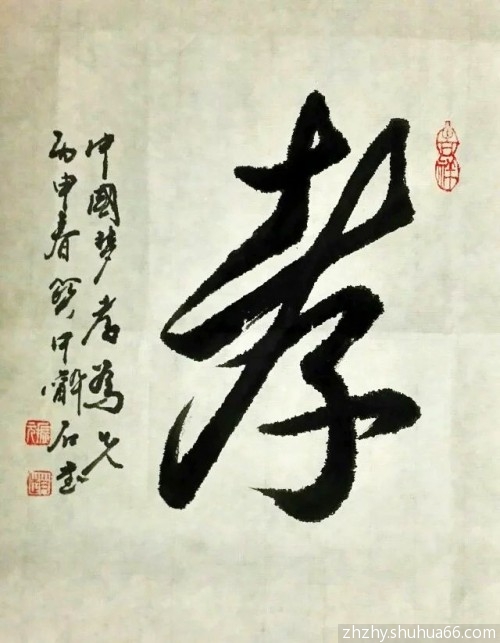 孝
中國梦孝為先
丙申春賀甲
吉祥
zhzhy.shuhua66.com